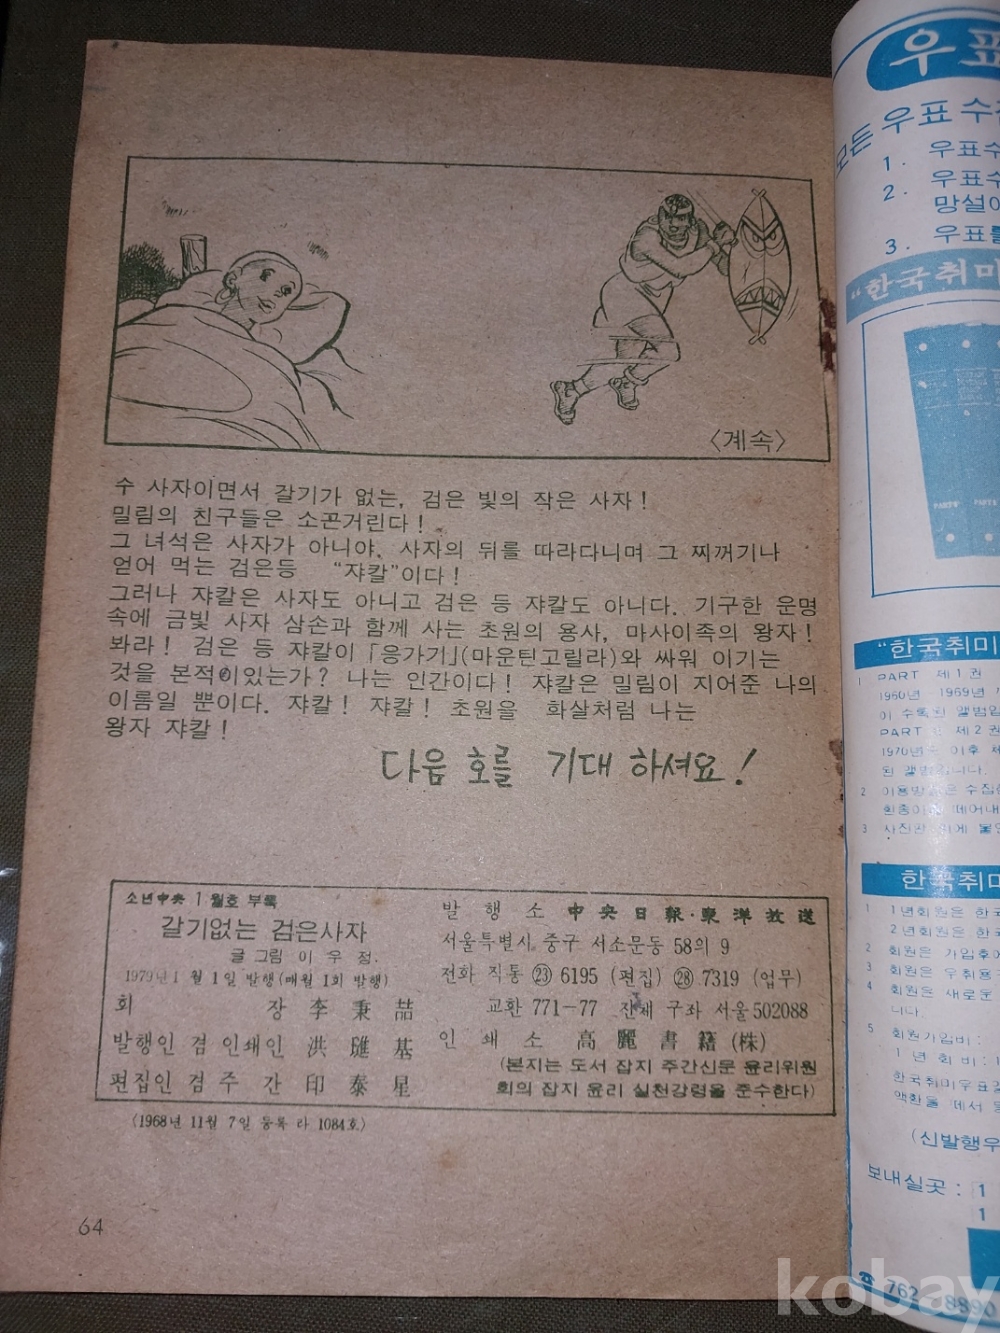 〈계속〉
수 사자이면서 갈기가 없는, 검은 빛의 작은 사자!
밀림의 친구들은 소곤거린다!
그 녀석은 사자가 아니야. 사자의 뒤를 따라다니며 그 찌꺼기나
얻어 먹는 검은등 “쟈칼”이다!
그러나 쟈칼은 사자도 아니고 검은 등 쟈칼도 아니다. 기구한 운명
속에 금빛 사자 삼손과 함께 사는 초원의 용사, 마사이족의 왕자!
봐라! 검은 등 쟈칼이 「응가기」(마운틴고릴라)와 싸워 이기는
것을 본적이있는가? 나는 인간이다! 쟈칼은 밀림이 지어준 나의
이름일 뿐이다. 쟈칼! 쟈칼! 초원을 화살처럼 나는
왕자 쟈칼!
다음 호를 기대 하셔요!
소년中央 1월호 부록
갈기없는 검은사자
글 그림 이 우 정.
1979년 1월 1일 발행(매월 1회 발행)
회 장 李 秉 喆
발행인 겸 인쇄인 洪 璡 基
편집인 겸 주 간 印 泰 星
발 행 소 中央日報·東洋放送
서울특별시 중구 서소문동 58의 9
전화 직통 ㉓ 6195 (편집) ㉘ 7319 (업무)
교환 771-77 진체 구좌 서울 502088
인 쇄 소 高麗書籍(株)
(본지는 도서 잡지 주간신문 윤리위원
회의 잡지 윤리 실천강령을 준수한다)
(1968년 11월 7일 등록 라 1084호)
64
우표
모든 우표 수
1. 우표수
2. 우표수
망설이
3. 우표를
“한국취미
PARTⅠ PARTⅡ
“한국취미
1 PART 제1권
1960년 1969년
이 수록된 앨범입
PART 제2권
1970년 이후
된 앨범입니다.
2
3
한국취미
1 1년회원은 한국
2년회원은 한국
2 회원은 가입후에
3 회원은 우취용
4 회원은 새로운
니다.
5 회원가입비:
1 년 회 비:
한국취미우표
(신발행우
보내실곳: 1
1
☎ 762-8890
kobay